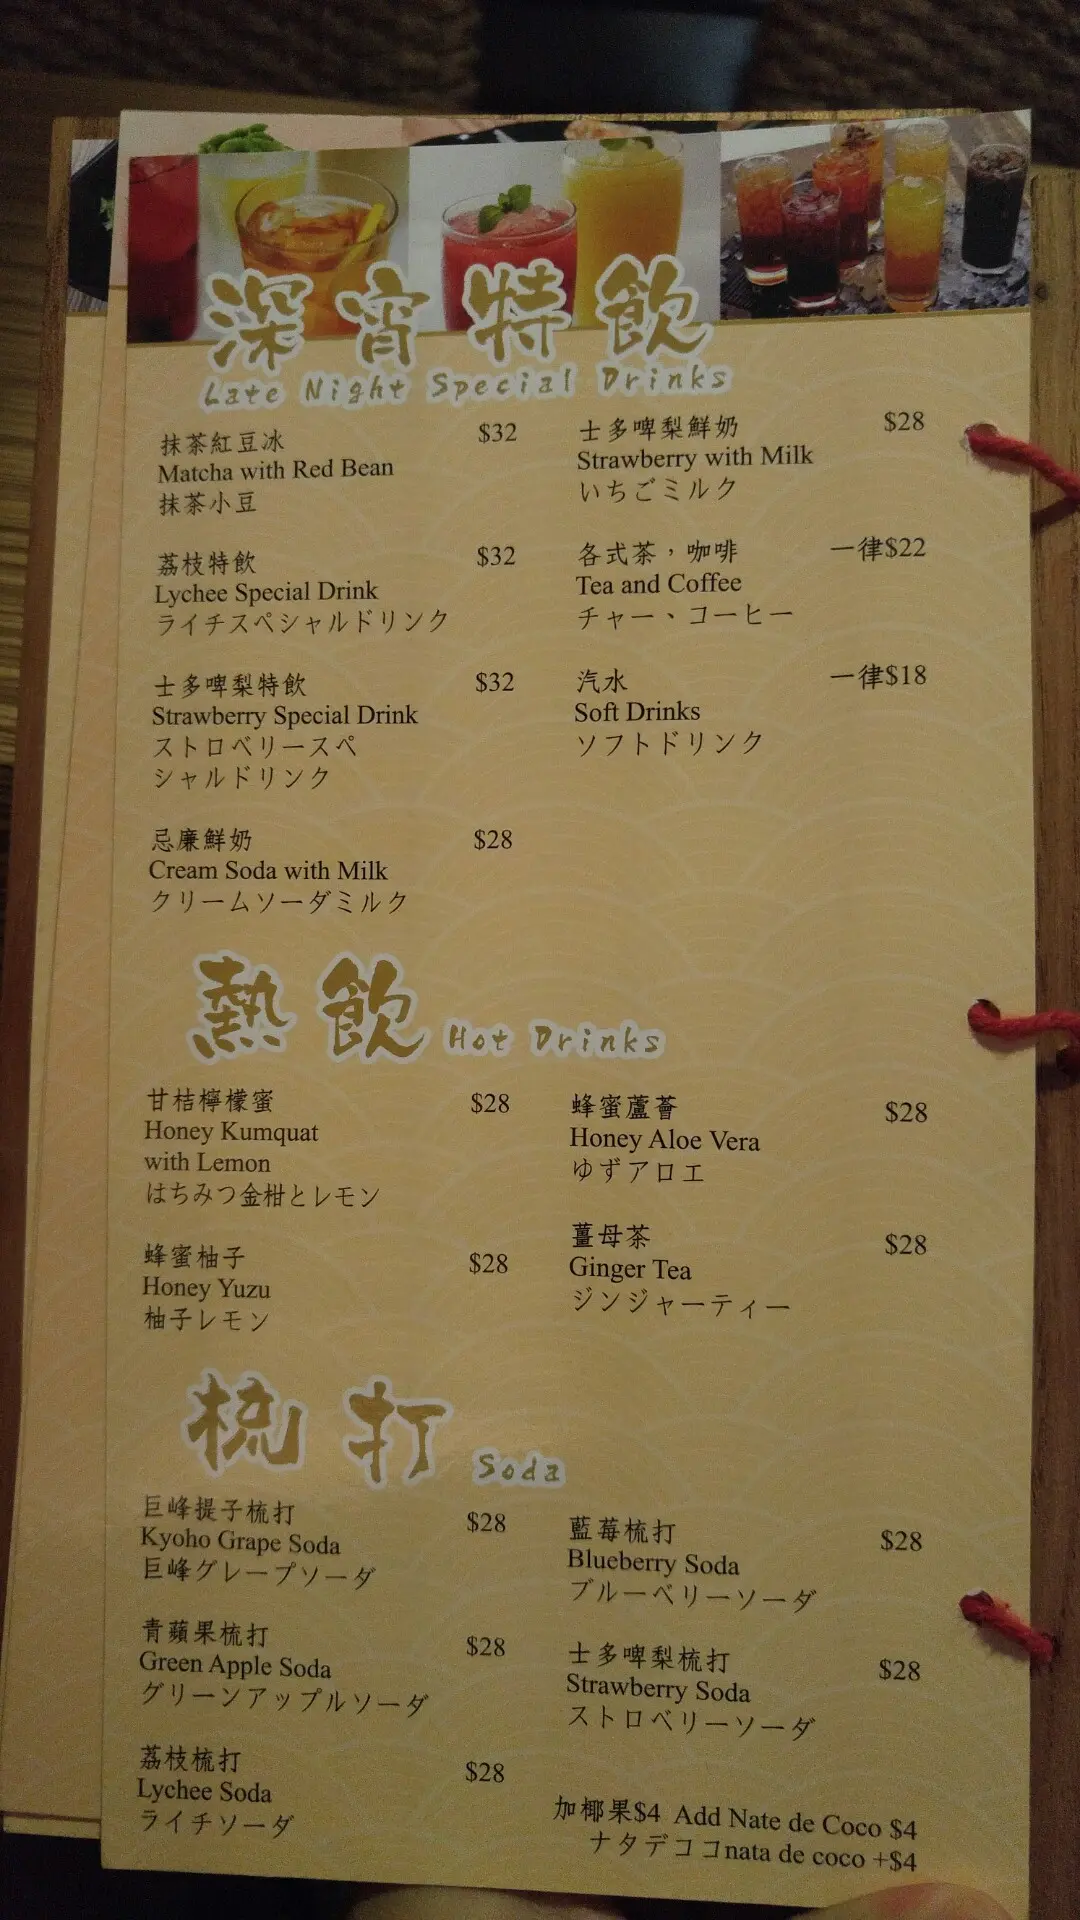 深宵特飲
Late Night Special Drinks
抹茶紅豆冰 $32
Matcha with Red Bean
抹茶小豆
荔枝特飲 $32
Lychee Special Drink
ライチスペシャルドリンク
士多啤梨特飲 $32
Strawberry Special Drink
ストロベリースペ
シャルドリンク
忌廉鮮奶 $28
Cream Soda with Milk
クリームソーダミルク
士多啤梨鮮奶 $28
Strawberry with Milk
いちごミルク
各式茶，咖啡 一律$22
Tea and Coffee
チャー、コーヒー
汽水 一律$18
Soft Drinks
ソフトドリンク
熱飲 Hot Drinks
甘桔檸檬蜜 $28
Honey Kumquat
with Lemon
はちみつ金柑とレモン
蜂蜜柚子 $28
Honey Yuzu
柚子レモン
蜂蜜蘆薈 $28
Honey Aloe Vera
ゆずアロエ
薑母茶 $28
Ginger Tea
ジンジャーティー
梳打 Soda
巨峰提子梳打 $28
Kyoho Grape Soda
巨峰グレープソーダ
青蘋果梳打 $28
Green Apple Soda
グリーンアップルソーダ
荔枝梳打 $28
Lychee Soda
ライチソーダ
藍莓梳打 $28
Blueberry Soda
ブルーベリーソーダ
士多啤梨梳打 $28
Strawberry Soda
ストロベリーソーダ
加椰果$4 Add Nate de Coco $4
ナタデココnata de coco +$4